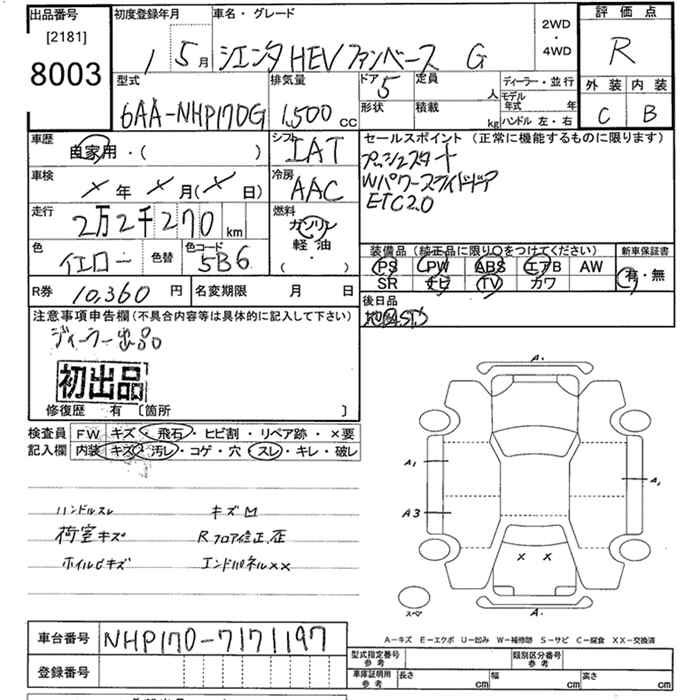 出品番号
[2181]
8003
初度登録年月 1 5月
車名・グレード
シエンタ HEV ファンベース G
2WD
・
4WD
評価点
R
外装 内装
C B
型式
6AA-NHP170G
排気量
1,500 cc
ドア 5
形状
定員 人
積載 kg
ディーラー・並行
モデル年式 年
ハンドル 左・右
車歴 自家用・( )
シフト IAT
セールスポイント (正常に機能するものに限ります)
プッシュスタート
Wパワースライドドア
ETC2.0
車検 × 年 × 月(× 日)
冷房 AAC
走行 2万2千270 km
燃料
ガソリン
軽油
( ・ )
色 イエロー 色替
色コード 5B6
装備品 (純正品に限り○をつけてください)
新車保証書
PS PW ABS エアB AW
SR ナビ TV カワ
有・無
R券 10,360 円 名変期限 月 日
後日品
注意事項申告欄 (不具合内容等は具体的に記入して下さい)
ディーラー出品。
初出品
修復歴 有 〔箇所 〕
検査員 記入欄
FW キズ・飛石・ヒビ割・リペア跡・×要
内装 キズ・汚レ・コゲ・穴・スレ・キレ・破レ
ハンドルスレ キズM
荷室キズ Rフロア修正、歪
ホイルヒキズ エンドパネル××
A.
A1
A1
A3
× ×
A.
スペア
A-キズ E-エクボ U-凹み W-補修跡 S-サビ C-腐食 XX-交換済
車台番号 NHP170-7171197
登録番号
型式指定番号 参考
類別区分番号 参考
車庫証明用 参考
長さ cm 幅 cm 高さ cm